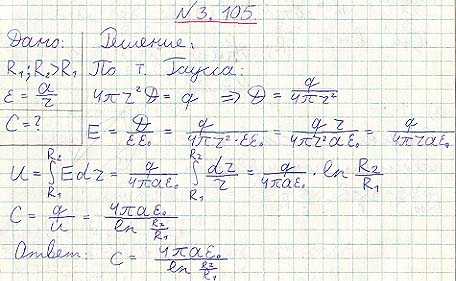 №3.105.
Дано: Решение:
R₁; R₂>R₁ По т. Гаусса:
ε = a/r 4πr²D = q ⇒ D = q/4πr²
C = ? E = D/εε₀ = q/4πr²·εε₀ = qr/4πr²aε₀ = q/4πraε₀
U = ∫R₁R₂ Edr = q/4πaε₀ ∫R₁R₂ dr/r = q/4πaε₀ · ln R₂/R₁
C = q/U = 4πaε₀/ln R₂/R₁
Ответ: C = 4πaε₀/ln R₂/R₁